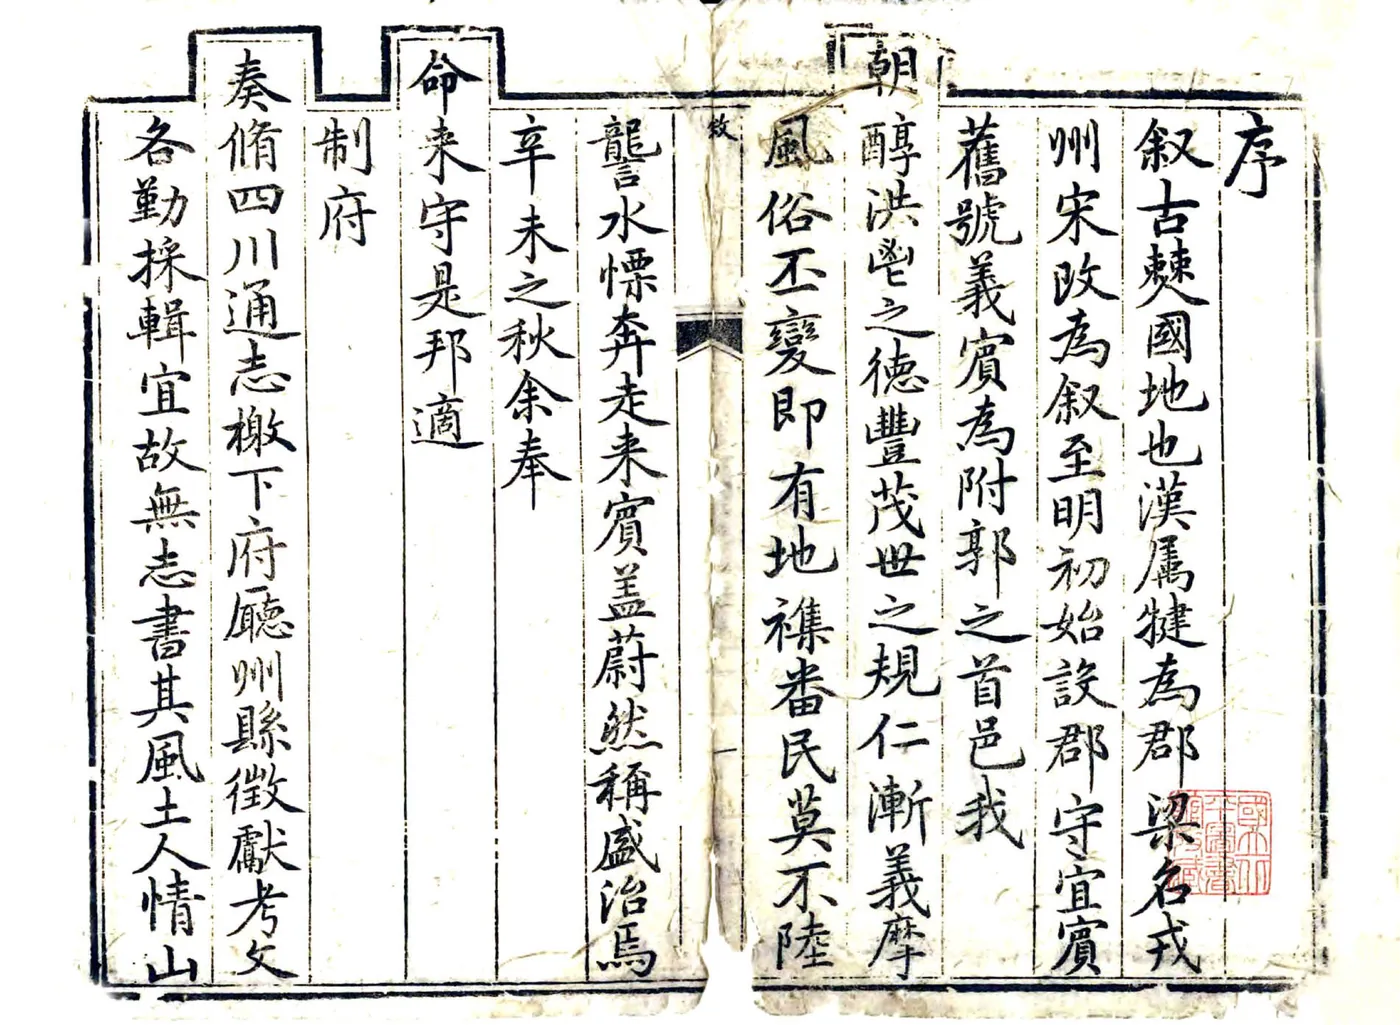 序
叙古僰國地也漢属犍為郡梁名戎
州宋改為叙至明初始設郡守宜賓
舊號義賓為附郭之首邑我
朝
醇洪鬯之德豐茂世之規仁漸義摩
風俗丕變即有地襍番民莫不陸
讋水慄奔走来賓盖蔚然稱盛治焉
辛未之秋余奉
命来守是邦適
制府
奏脩四川通志檄下府廳州縣徵獻考文
各勤採輯宜故無志書其風土人情山